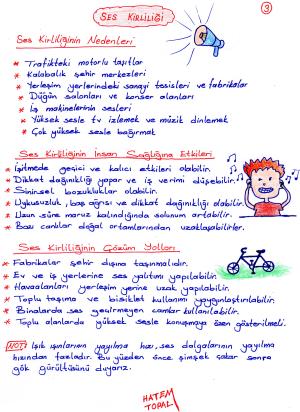 SES KİRLİLİĞİ
3
Ses Kirliliğinin Nedenleri
* Trafikteki motorlu taşıtlar
* Kalabalık şehir merkezleri
* Yerleşim yerlerindeki sanayi tesisleri ve fabrikalar
* Düğün salonları ve konser alanları
* İş makinelerinin sesleri
* Yüksek sesle tv izlemek ve müzik dinlemek
* Çok yüksek sesle bağırmak
Ses Kirliliğinin İnsan Sağlığına Etkileri
* İşitmede geçici ve kalıcı etkileri olabilir.
* Dikkat dağınıklığı yapar ve iş verimi düşebilir.
* Sinirsel bozukluklar olabilir.
* Uykusuzluk, baş ağrısı ve dikkat dağınıklığı olabilir.
* Uzun süre maruz kalındığında solunum artabilir.
* Bazı canlılar doğal ortamlarından uzaklaşabilirler.
Ses Kirliliğinin Çözüm Yolları
* Fabrikalar şehir dışına taşınmalıdır.
* Ev ve iş yerlerine ses yalıtımı yapılabilir.
* Havaalanları yerleşim yerine uzak yapılabilir.
* Toplu taşıma ve bisiklet kullanımı yaygınlaştırılabilir.
* Binalarda ses geçirmeyen camlar kullanılabilir.
* Toplu alanlarda yüksek sesle konuşmaya özen gösterilmeli.
NOT: Işık ışınlarının yayılma hızı, ses dalgalarının yayılma
hızından fazladır. Bu yüzden önce şimşek çakar sonra
gök gürültüsünü duyarız.
HATEM
TOPAL